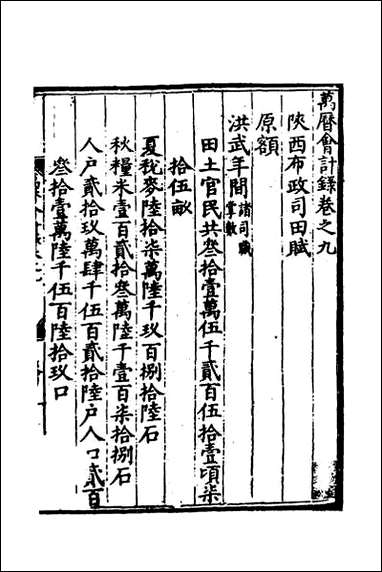 萬曆會計錄卷之九
陝西布政司田賦
原額
洪武年間諸司職掌數
田土官民共叁拾壹萬伍千貳百伍拾壹頃柒
拾伍畝
夏稅麥陸拾柒萬陸千玖百捌拾陸石
秋糧米壹百貳拾叁萬陸千壹百柒拾捌石
人户貳拾玖萬肆千伍百貳拾陸户人口貳百
叁拾壹萬陸千伍百陸拾玖口